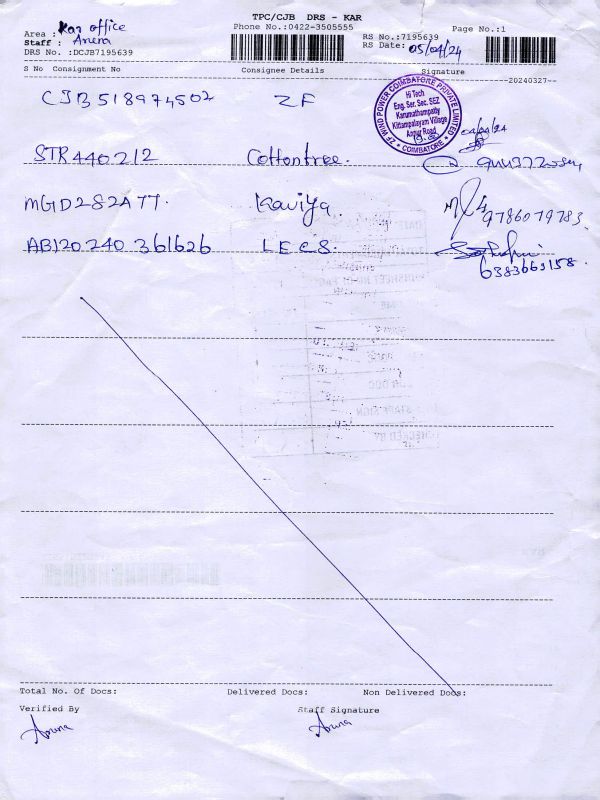 TPC/CJB DRS - KAR
Phone No.:0422-3505555
Area : Kar office
Staff : Aruna
DRS No. :DCJB7195639
RS No.:7195639
RS Date: 05/04/24
Page No.:1
S No Consignment No Consignee Details Signature
20240327
CJB518974502 ZF
ZF WIND POWER COIMBATORE PRIVATE LIMITED
Hi Tech
Eng. Ser. Sec. SEZ
Karumathampatty
Kittampalayam Village
Annur Road
COIMBATORE
STR440212 Cottontree.
MGD282A77. Kaviya 9786079783.
AB120240361626 LECS.
6383663158.
Total No. Of Docs: Delivered Docs: Non Delivered Docs:
Verified By Staff Signature
Aruna Aruna